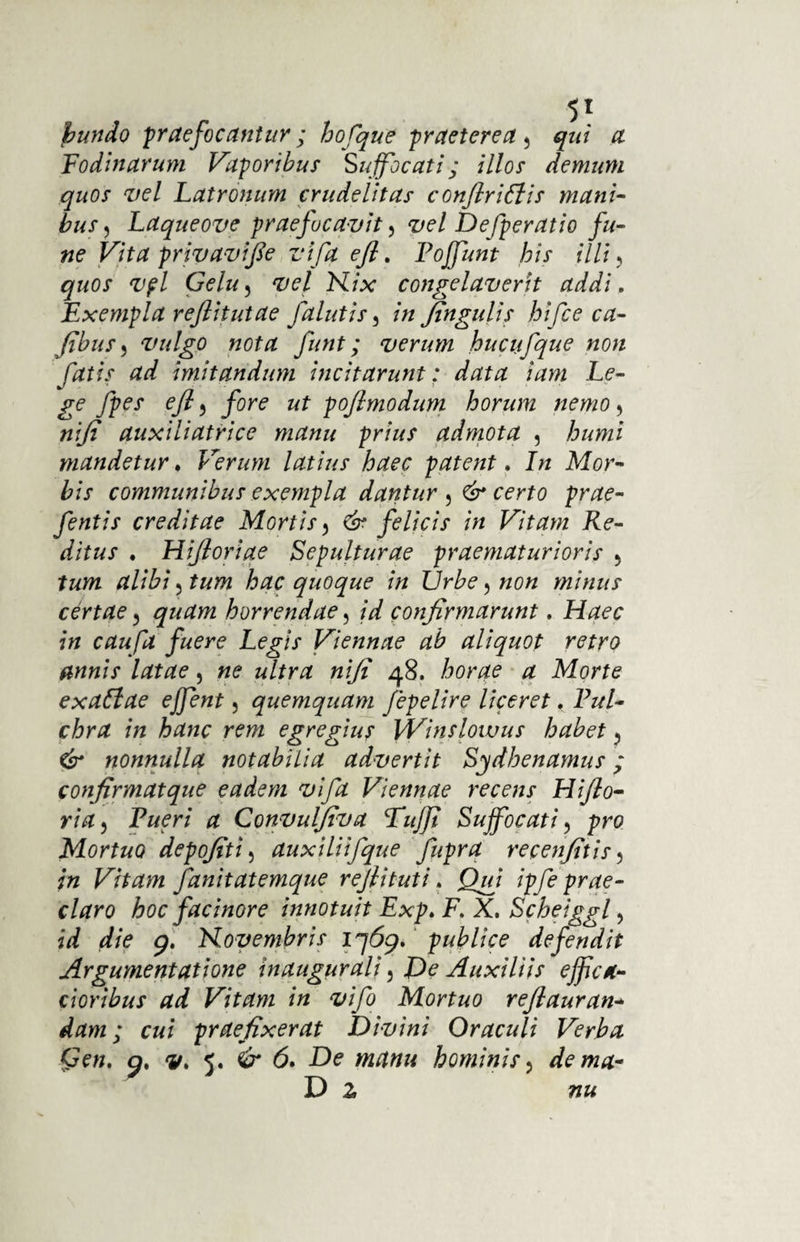 51
bundo praefocantur; hoſque praeterea, qui a
Fodinarum Vaporibus Suffocati; illos demum
quos vel Latronum crudelitas conſtrictis mani-
bus, Laqueove praefocavit, vel Deſperatio fu-
ne Vita privaviſſe viſa eſt. Poſſunt his illi,
quos vel Gelu, vel Nix congelaverit addi.
Exempla reſtitutae ſalutis, in ſingulis hiſce ca-
ſibus, vulgo nota ſunt; verum hucuſque non
ſatis ad imitandum incitarunt: data iam Le-
ge ſpes eſt, fore ut poſtmodum horum nemo,
niſi auxiliatrice manu prius admota, humi
mandetur. Verum latius haec patent. In Mor-
bis communibus exempla dantur, & certo prae-
ſentis creditae Mortis, & felicis in Vitam Re-
ditus. Hiſtoriae Sepulturae praematurioris,
tum alibi, tum hac quoque in Urbe, non minus
certae, quam horrendae, id confirmarunt. Haec
in cauſa fuere Legis Viennae ab aliquot retro
annis latae, ne ultra niſi 48. horae a Morte
exactae eſſent, quemquam ſepelire liceret. Pul-
chra in hanc rem egregius Winslowus habet,
& nonnulla notabilia advertit Sydhenamus;
confirmatque eadem viſa Viennae recens Hiſto-
ria, Pueri a Convulſiva Tuſſi Suffocati, pro
Mortuo depoſiti, auxiliiſque ſupra recenſitis,
in Vitam ſanitatemque reſtituti. Qui ipſe prae-
claro hoc facinore innotuit Exp. F. X. Scheiggl,
id die 9. Novembris 1769. publice defendit
Argumentatione inaugurali, De Auxiliis effica-
cioribus ad Vitam in viſo Mortuo reſtauran-
dam; cui praefixerat Divini Oraculi Verba
Gen. 9. v. 5. & 6. De manu hominis, de ma-
D 2 nu